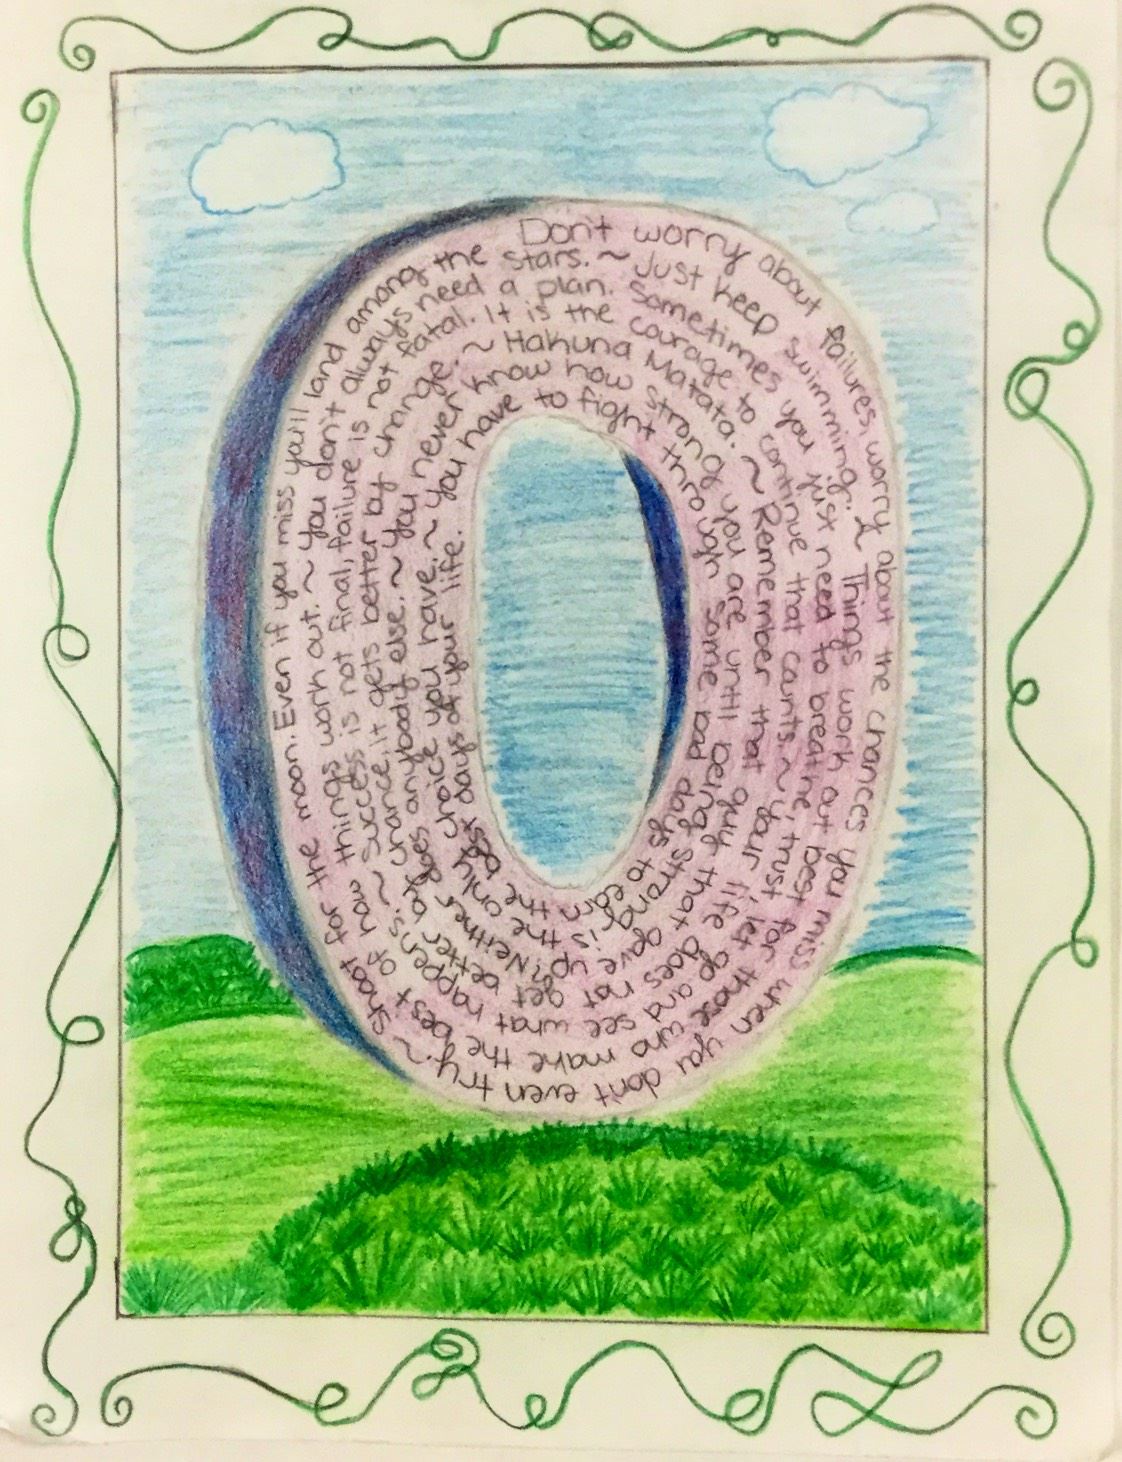 Don't worry about failures, worry about the chances you miss when you don't even try. ~
Shoot for the moon. Even if you miss you'll land among the stars. ~
Just keep swimming. ~
Things work out best for those who make the best of how things work out. ~
You don't always need a plan. Sometimes you just need to breathe, trust let go and see what happens. ~
Success is not final, failure is not fatal. It is the courage to continue that counts. ~
Your life does not get better by chance, it gets better by change. ~
Hakuna Matata. ~
Remember that guy that gave up? Neither does anybody else. ~
You never know how strong you are until being strong is the only choice you have. ~
You have to fight through some bad days to earn the best days of your life.